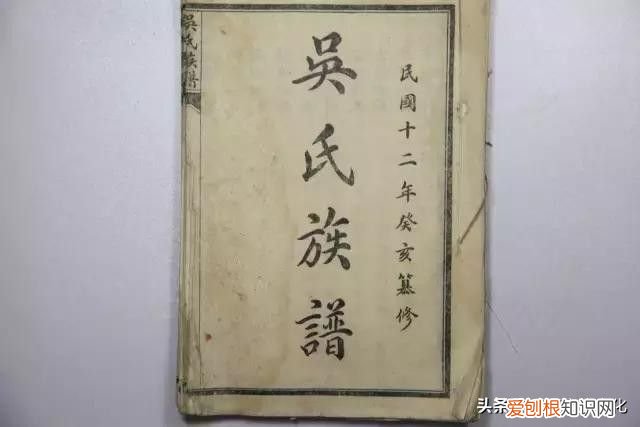 民國十二年癸亥纂修
吳氏族譜
吳氏族譜
头条
爱刨根知识网化